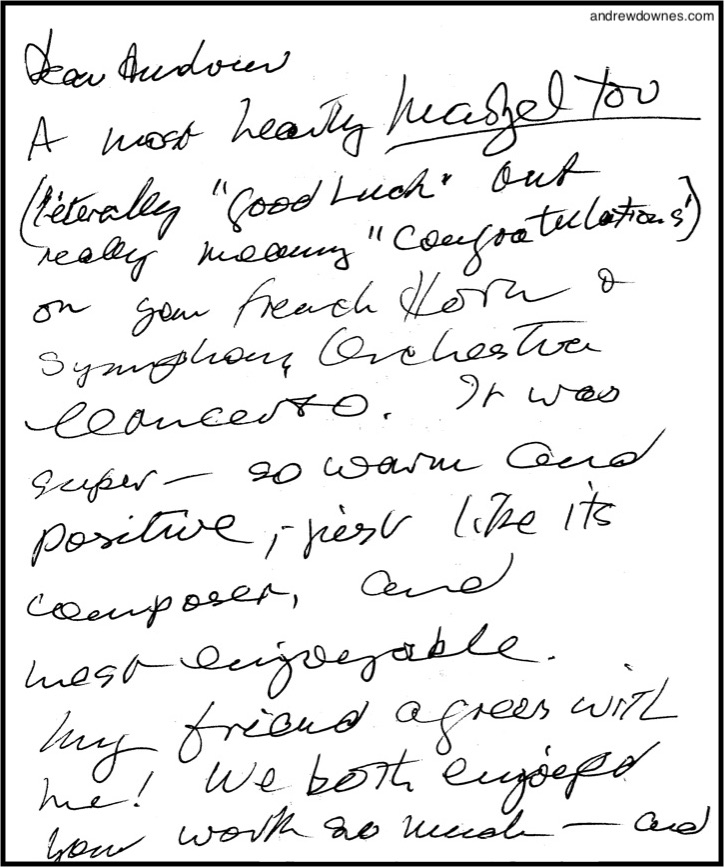 andrewdownes.com
Dear Andrew
A most hearty Mazel Tov
(literally "good Luck" but
really meaning "Congratulations")
on your French Horn &
Symphony Orchestra
Concerto. It was
super — so warm and
positive, just like its
composer, and
most enjoyable.
My friend agrees with
me! We both enjoyed
your work so much — and